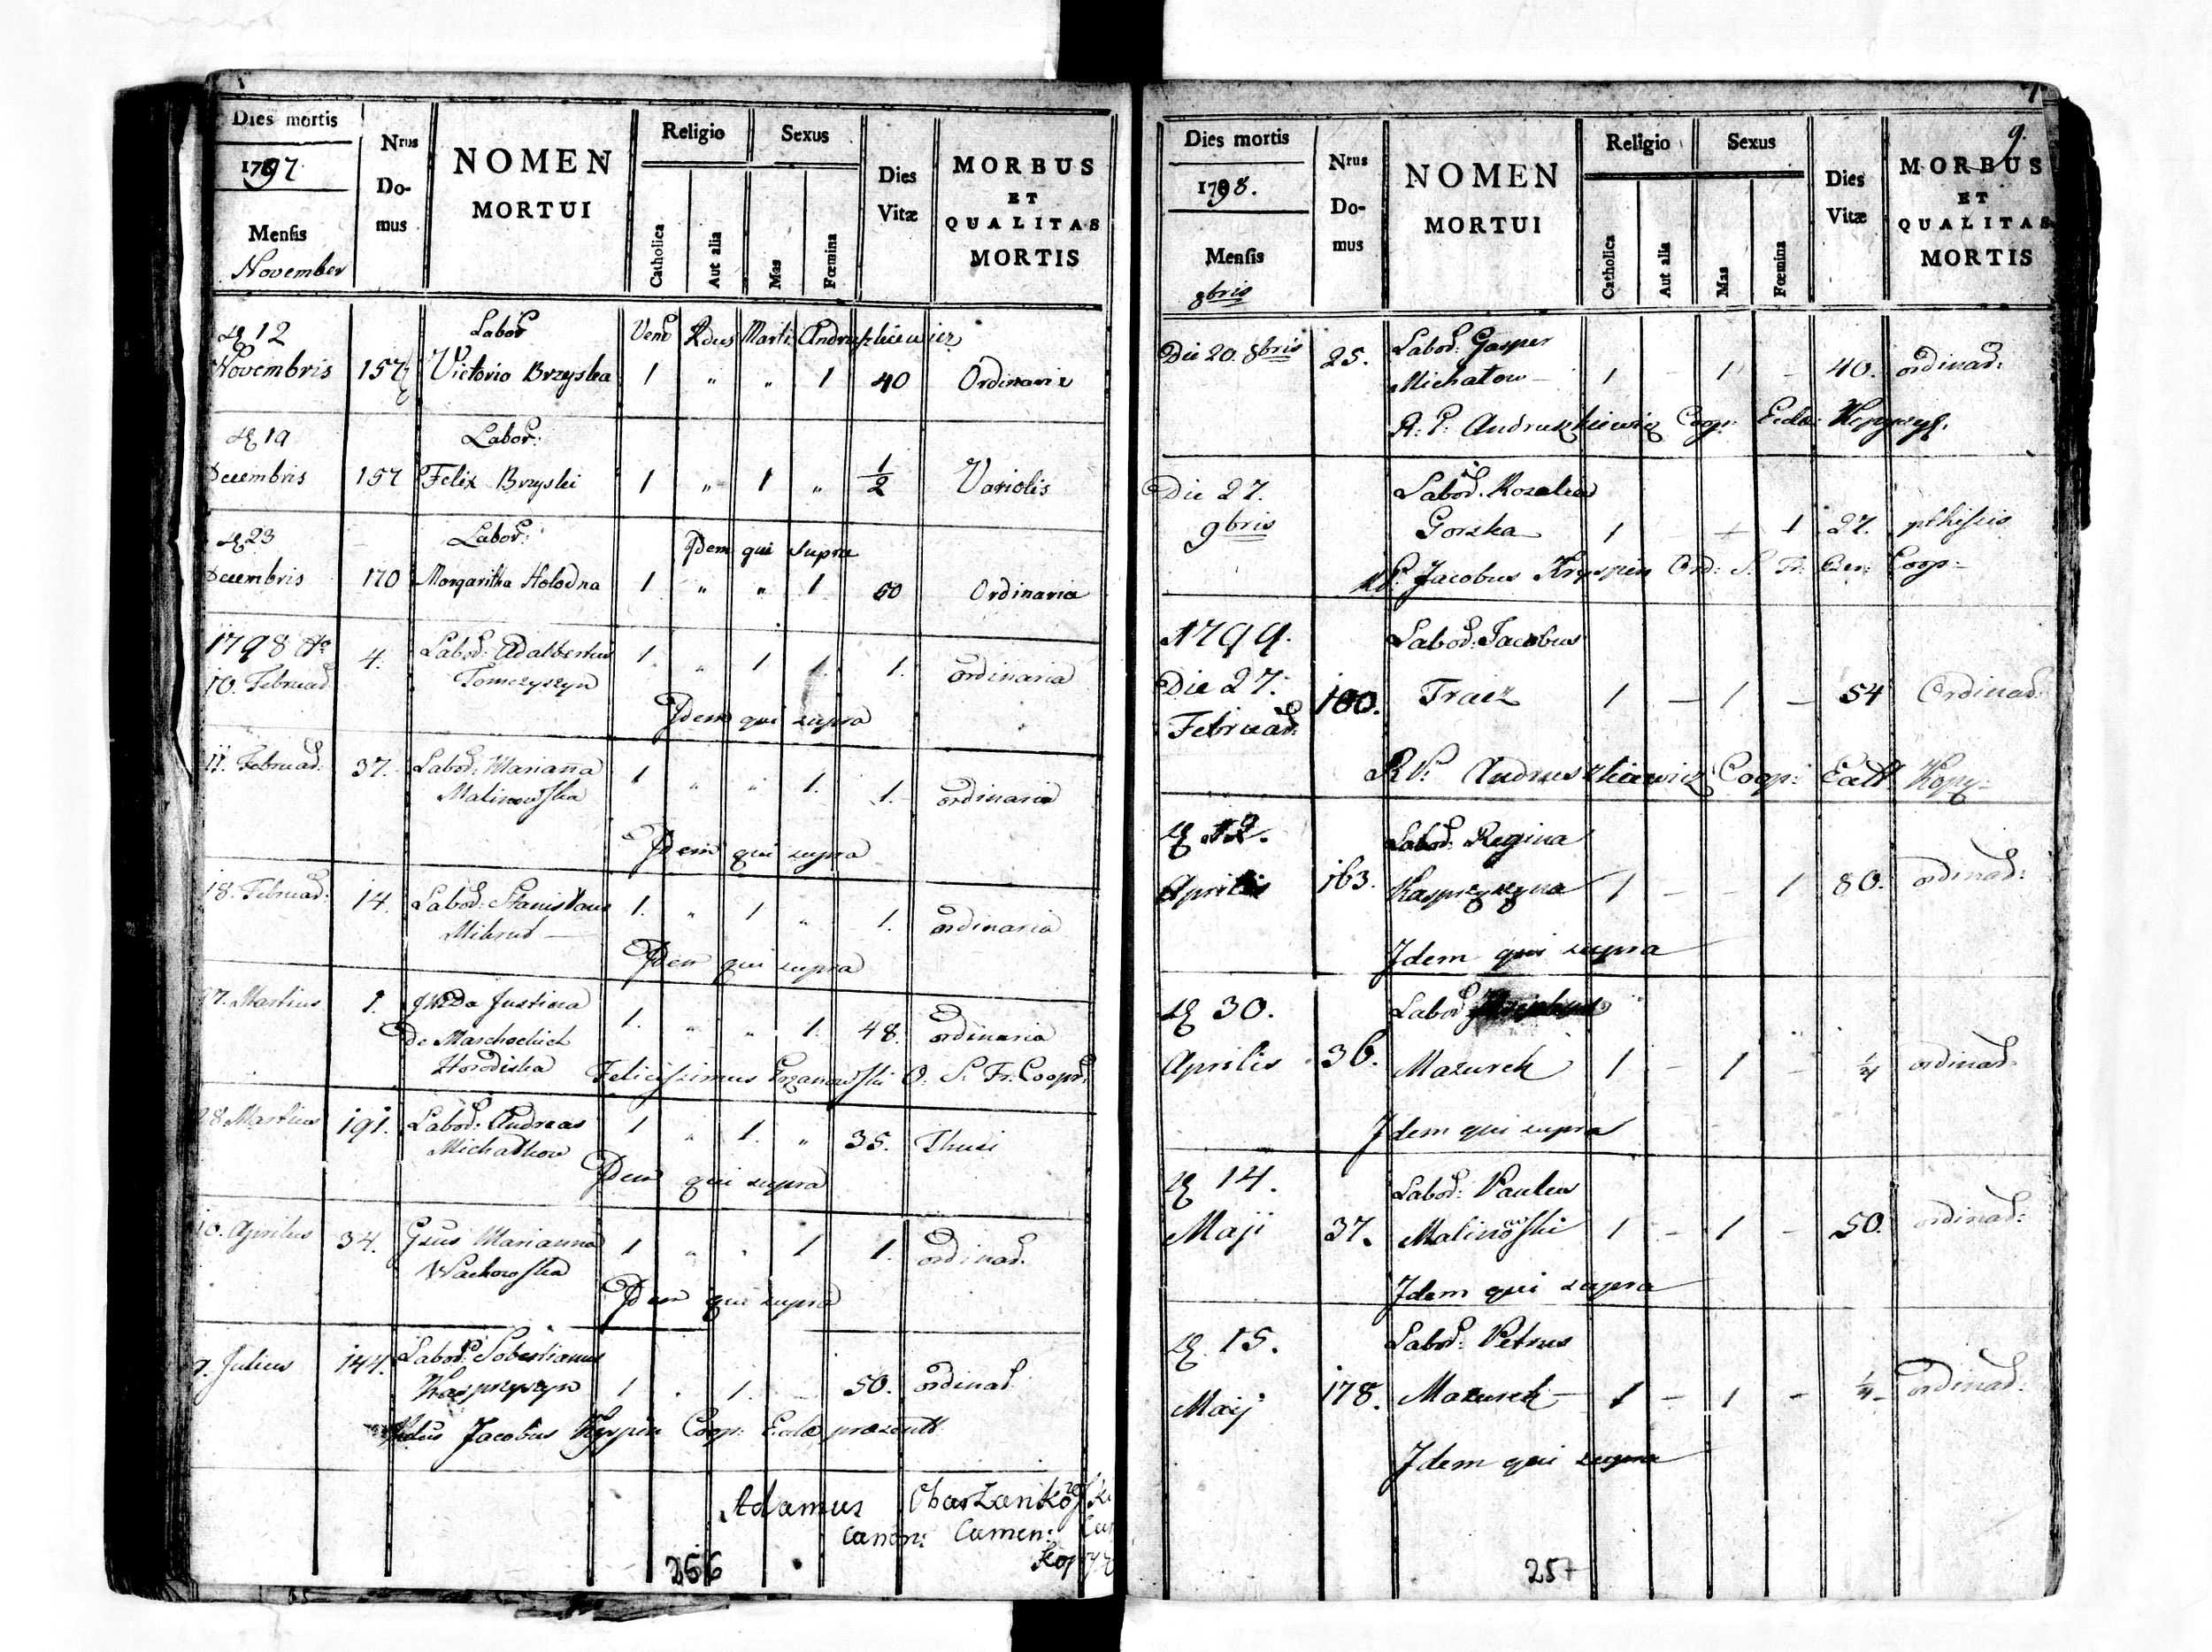 Dies mortis
1797
Mensis
November
Nrus
Do-
mus
NOMEN
MORTUI
Religio
Catholica
Aut alia
Sexus
Mas
Fœmina
Dies
Vitæ
MORBUS
ET
QUALITAS
MORTIS
12 Labor Vend Rdus Marti: Andruszkiewicz
Novembris 157 Victoria Brzyska 1 " " 1 40 Ordinaria
19 Labor:
Decembris 157 Felix Brzyski 1 " 1 " 1/2 Variolis
23 Labor: Idem qui supra
Decembris 170 Margaritha Holodna 1 " " 1 50 Ordinaria
1798 4. Labor: Adalbertus 1. " 1 1. ordinaria
10. Februar Tomczyszyn
Idem qui supra
11. Februar: 37. Labor: Marianna 1 " " 1. 1. ordinaria
Malinowska
Idem qui supra
18. Februar: 14. Labor: Stanislaus 1. " 1 " 1. ordinaria
Mikrut —
Idem qui supra
27. Martius 1. Justina 1. " " 1. 48. ordinaria
de Marchockich
Horodiska Felicissimus O. S. Fr. Coopr.
28 Martius 191. Labor: Andreas 1 " 1. " 35. Thusi
Michatkow
Idem qui supra
10. Aprilus 34. Marianna 1 " " 1 1. ordinar.
Wachowska
Idem qui supra
9. Julius 144. Labor: Sobestianus
Kasprzyszyn 1 . 1. — 50. ordinar
Rdus Jacobus Kryspin Coop: Eclæ præsentis
Adamus Obarzankowski
Canon: Camen:
256
Dies mortis
1798.
Mensis
8bris
Nrus
Do-
mus
NOMEN
MORTUI
Religio
Catholica
Aut alia
Sexus
Mas
Fœmina
Dies
Vitæ
9.
MORBUS
ET
QUALITAS
MORTIS
Die 20. 8bris 25. Labor: Gasper
Michatow — 1 - 1 - 40. ordinar:
R. P. Andruszkiewicz Coop: Eclæ:
Die 27. Labor. Rozalia
9bris Gorzka 1 - + 1 27. pthisis
R.P. Jacobus Kryspin Ord: S. Fr: Coop:
1799. Labor: Jacobus
Die 27. 100. Tracz 1 — 1 — 54 Ordinar:
Februar.
R.P. Andruszkiewicz Coop: Kopy-
12. Labor. Regina
Aprilis 163. Kasprzyszyna 1 — — 1 80. ordinar:
Idem qui supra
30. Labor
Aprilis 36. Mazurek 1 - 1 - 1/4 ordinar.
Idem qui supra
14. Labor: Paulus
Maji 37. Malinowski 1 - 1 - 50. ordinar:
Idem qui supra
15. Labor: Petrus
Maij 178. Mazurek — 1 — 1 - 1/4 - ordinar:
Idem qui supra
257